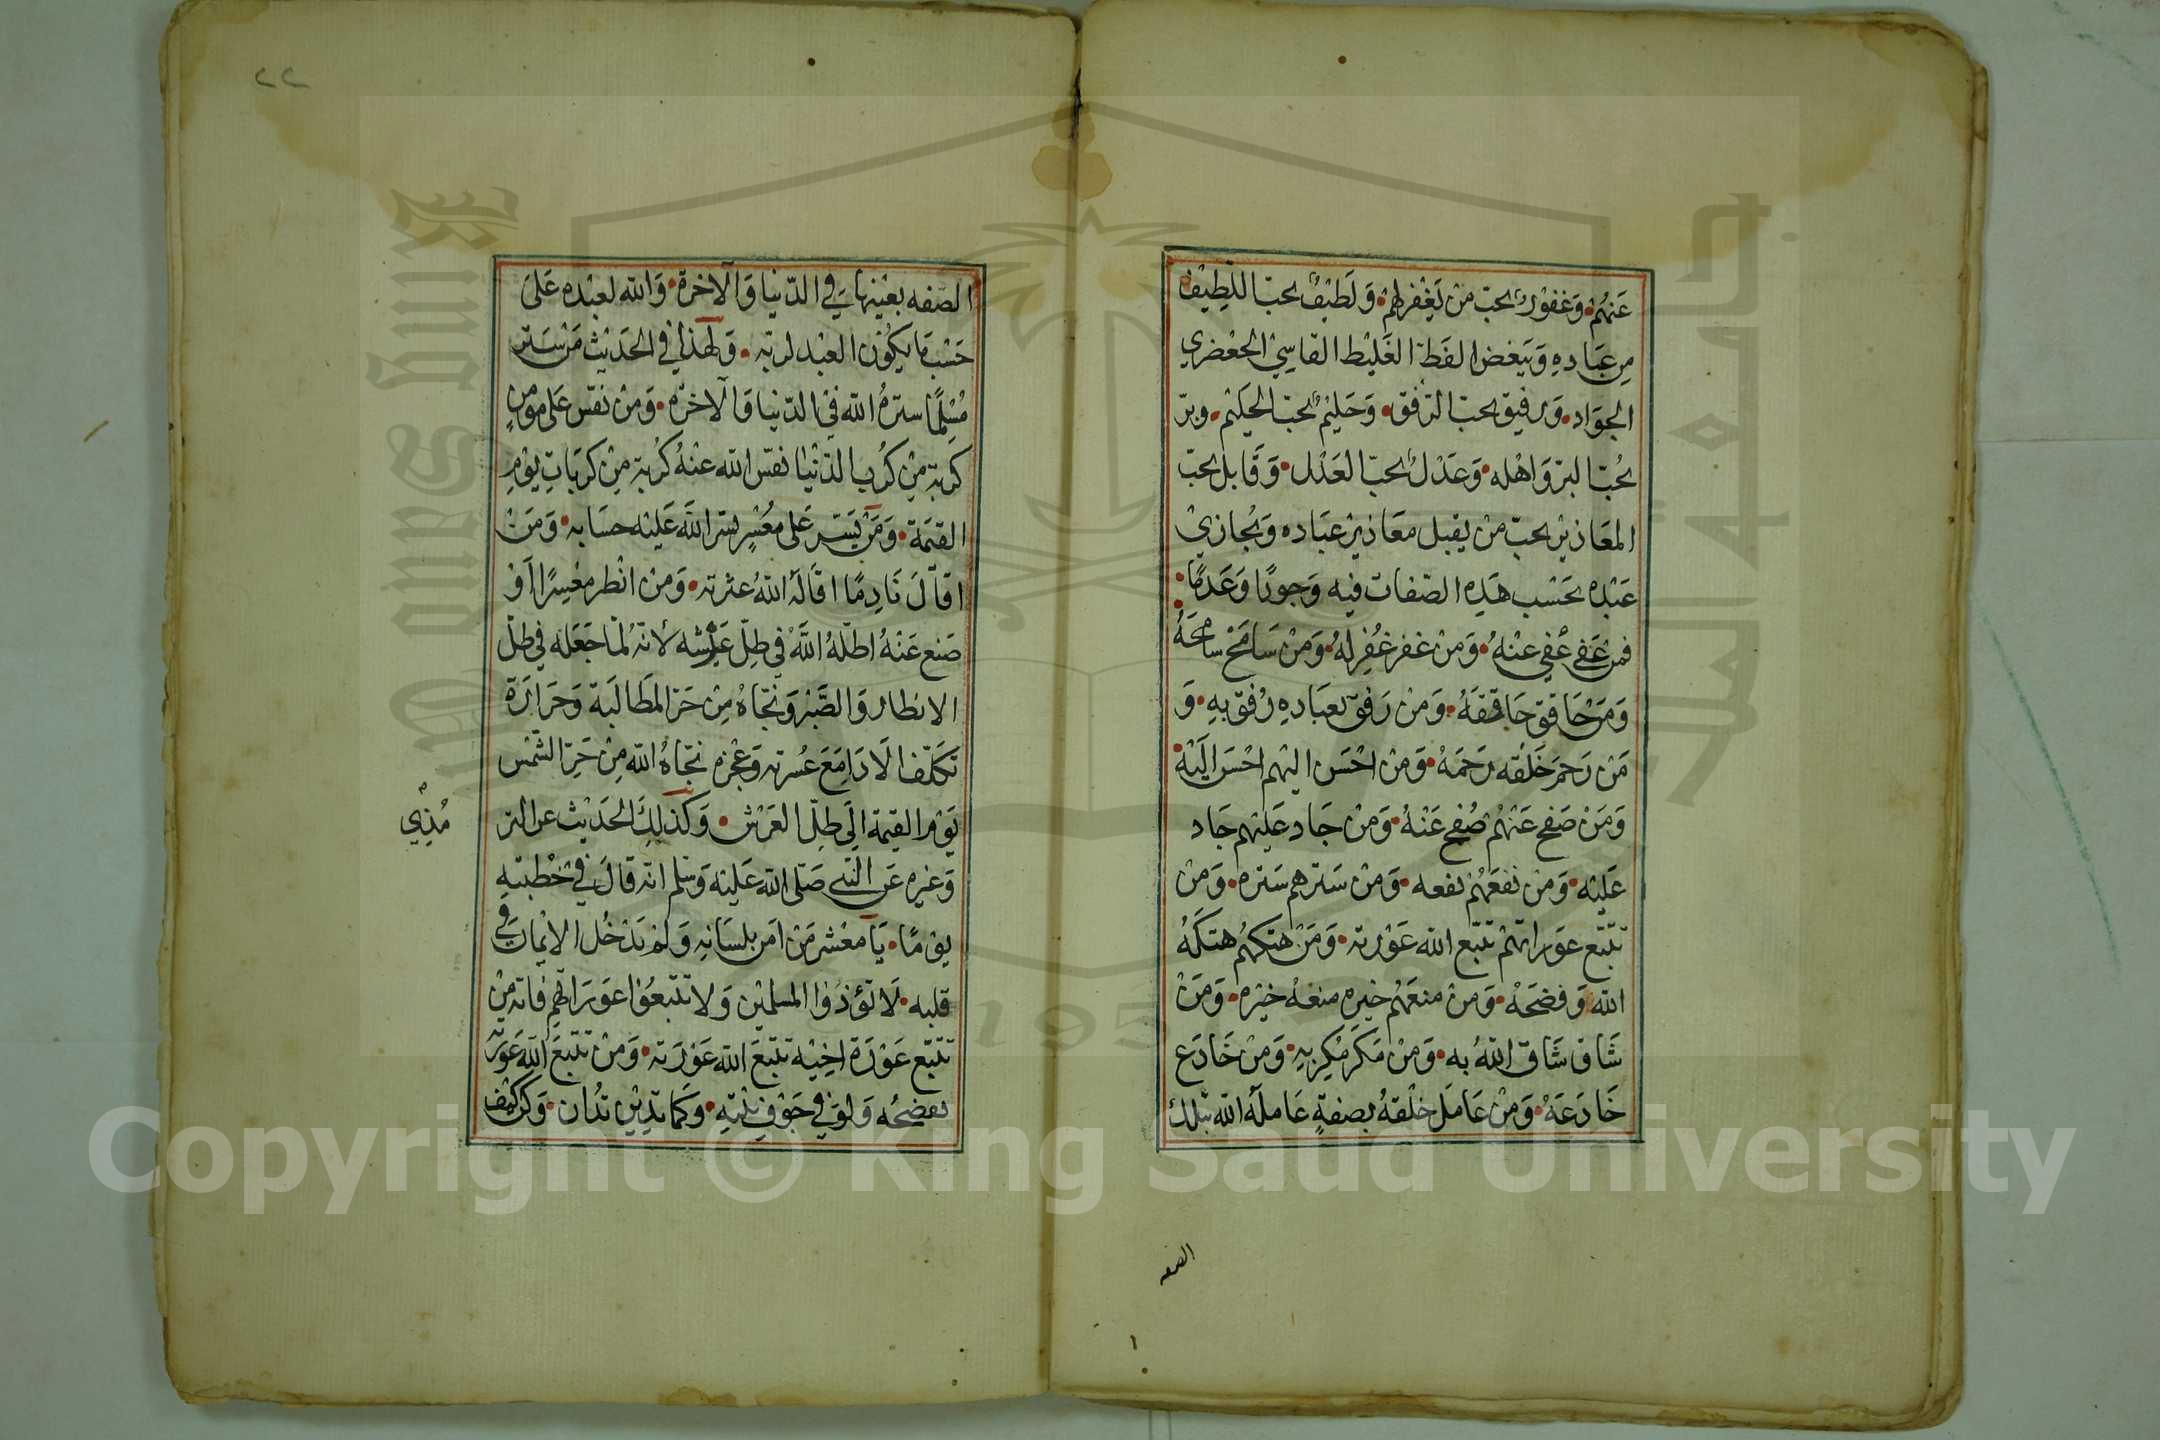 عَنهُمْ وَغفوْرٌ يحبّ مَنْ يَغْفر لهمْ وَلَطيْفٌ يحبّ اللّطِيْف
مِن عِبَادِهِ وَيَبغض الفَظّ الغَليْظ القاسِيْ الجعْضري
الجوَاد وَرفيق يحبّ الرّفق وَحَليْمٌ يحبّ الحليْم وبرّ
يُحبّ البرّ وَاهْله وَعَدْلٌ يحبّ العَدْل وَقَابل يحبّ
المعَاذيْر يحبّ منْ يقبل معَاذيْر عبَاده وَيُجازيْ
عَبْده بحَسْب هَذِهِ الصّفات فيْه وَجودًا وَعَدمًا
فمنْ عَفى عُفي عنْهُ وَمَنْ غفر غُفِر لهُ وَمَنْ سَامَحْ سَامحَهُ
وَمَنْ حَاقق حَاققَهُ وَمَنْ رَفق بعبَادِهِ رُفق بهِ وَ
مَنْ رَحِمَ خَلْقه رَحمَهُ وَمَنْ احْسَن اليْهم احْسَن اليْه
وَمَنْ صَفح عَنْهُمْ صُفح عَنْهُ وَمَنْ جَاد عَليْهم جَاد
عَليْه وَمَنْ نفعَهُمْ نفعه وَمَنْ سَترهم سَتره وَمَنْ
تتبّع عوَراتهمْ تتبّع الله عَوْرته وَمَنْ هتكهُم هتكَهُ
الله وَفضحَهُ وَمَنْ منعَهُم خيره منعَهُ خيْره وَمَنْ
شَاقّ شَاقّ اللهُ به وَمَنْ مَكَر مُكِر بهِ وَمَنْ خَادَع
خَادَعَهُ وَمَنْ عَامَل خلْقهُ بصفةٍ عَاملَهُ الله بتلك
الصفه
٢٢
الصّفه بعيْنهَا في الدّنيا وَالآخرة وَالله لعبْده عَلىَ
حَسْب مَا يكُوْن العبْد لربّه وَلهَذا في الحَديْث مَنْ سَتر
مُسْلِمًا سترهُ الله في الدّنيا وَالآخرَه وَمَنْ نفّس عَلى مؤمنٍ
كربة مِنْ كُرَب الدّنْيَا نفسّ الله عنْهُ كُربة مِنْ كربَاتِ يوْم
القيمَة وَمَنْ يسّر عَلى معُسْرٍ يسّر اللّه عَليْه حسَابه وَمَنْ
اقاَلَ نَادِمًا اقَالَهُ اللّهُ عثرته وَمَنْ انْظر معْسِرًا اَوْ
ضَع عَنْهُ اظلّهُ اللهُ في ظلّ عَرْشه لأنّه لمّا جَعَله في ظلّ
الانظار وَالصَّبْر وَنجّاهُ مِنْ حَرّ المطَالبَة وَحَرَارَة
تكلّف الادَا مَعَ عُسْرته وَعجْزه نجّاهُ الله مِنْ حَرّ الشّمْس
يَوْم القيمة الَى ظلّ العَرْش وَكذَلِكَ الحَديْث عن التر
مُذِي
وَغيره عَن النّبي صَلى الله عَليْه وَسَلم انّه قالَ في خُطْبتهِ
يوْمًا يَا معْشر مَنْ امَن بلسَانهِ وَلمْ يَدْخُل الايْمَان في
قلبه لَا تؤذُوْا المسلميْن وَلا تتّبعُوْا عوَرَاتهِم فانّه مَنْ
تتبّع عَوْرَة اخِيْه تتبّعَ الله عَوْرَته وَمَنْ تتّبعَ اللهُ عَوْرته
يفضحُه وَلوْ في جَوْف بيْتهِ وَكمَا تديْن تُدَان وَكنْ كيْف
١
Copyright © King Saud University
King Saud University
جامعة الملك سعود